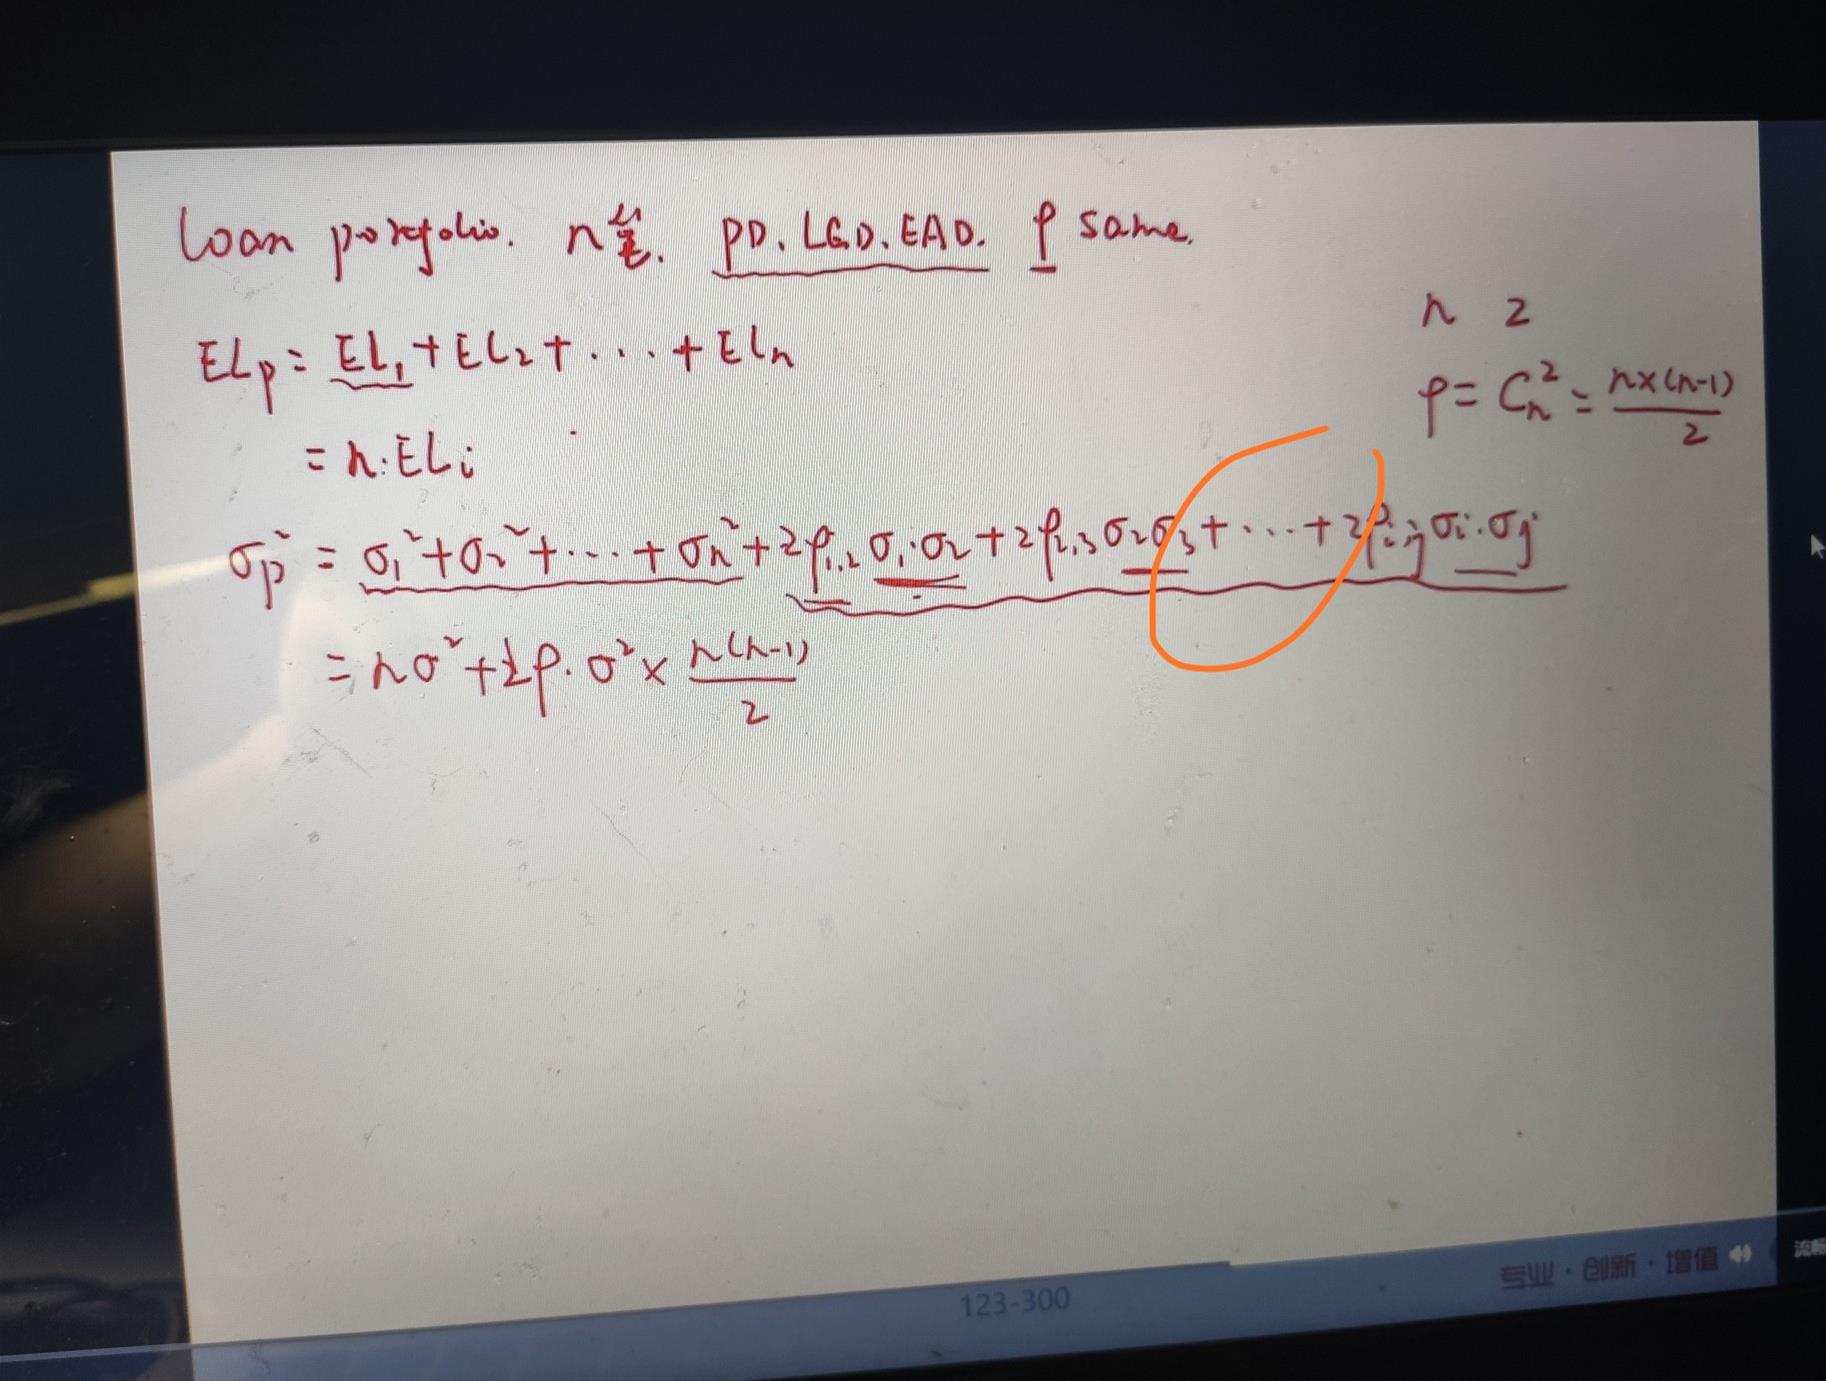 loan portfolio. n笔. PD. LGD. EAD. ρ same.
ELp = EL₁ + EL₂ + ··· + ELn
= n·ELi
n 2
ρ = Cn² = n×(n-1)/2
σp² = σ₁² + σ₂² + ··· + σn² + 2ρ₁,₂ σ₁·σ₂ + 2ρ₂,₃ σ₂σ₃ + ··· + 2ρi,j σi·σj
= nσ² + 2ρ·σ² × n(n-1)/2
专业·创新·增值
流畅
123-300